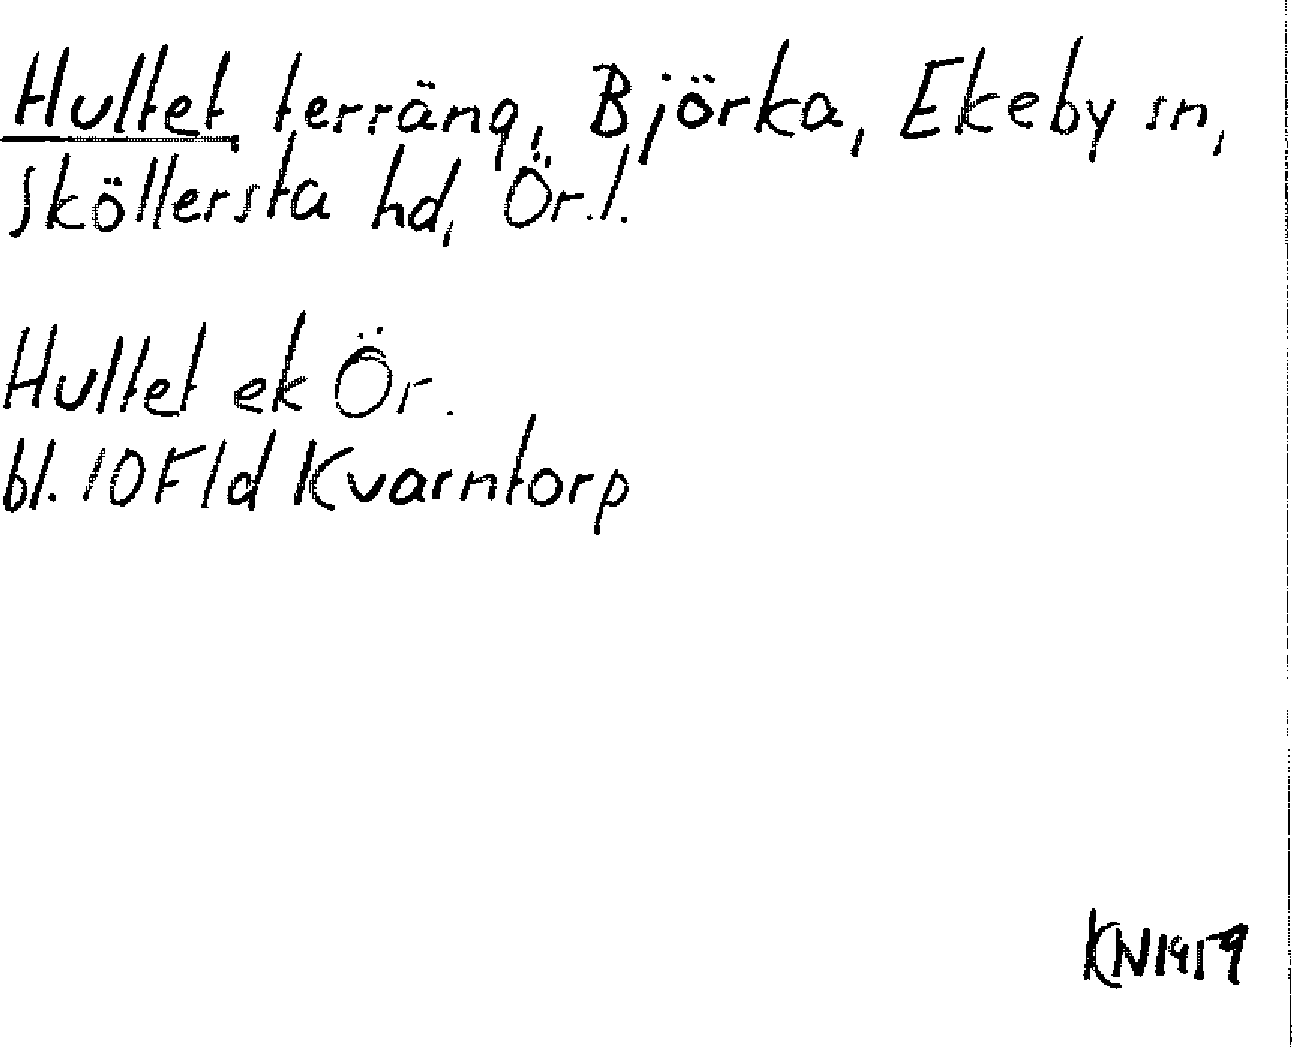 Hultet terräng, Björka, Ekeby sn,
Sköllersta hd, Ör.l.
Hultet ek Ör.
bl. 10F1d Kvarntorp
KN1959